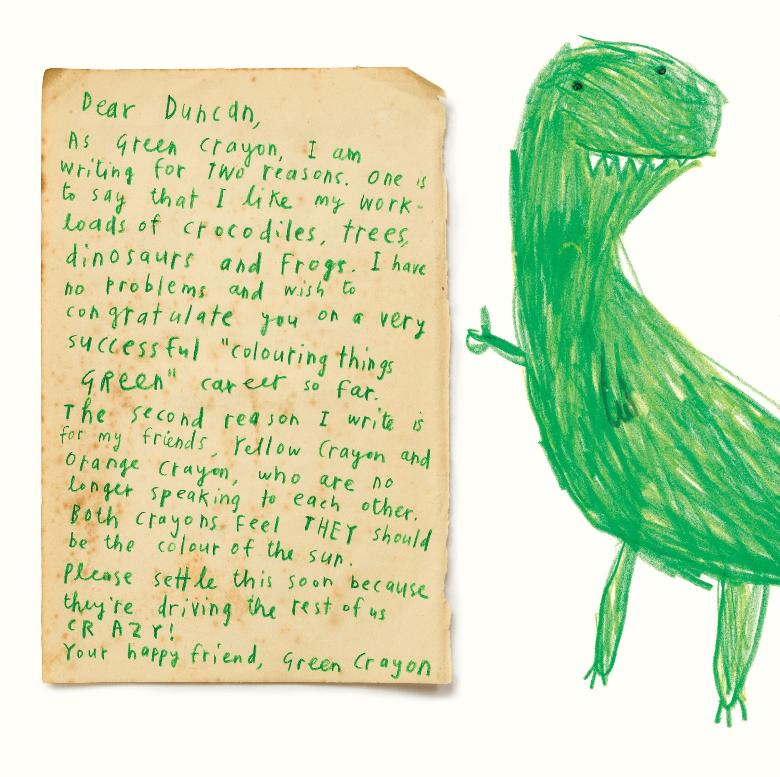 Dear Duncan,
As Green Crayon, I am
writing for TWO reasons. One is
to say that I like my work-
loads of crocodiles, trees,
dinosaurs and frogs. I have
no problems and wish to
congratulate you on a very
successful "colouring things
GREEN" career so far.
The second reason I write is
for my friends, Yellow Crayon and
Orange Crayon, who are no
longer speaking to each other.
Both crayons feel THEY should
be the colour of the sun.
Please settle this soon because
they're driving the rest of us
CRAZY!
Your happy friend, Green Crayon